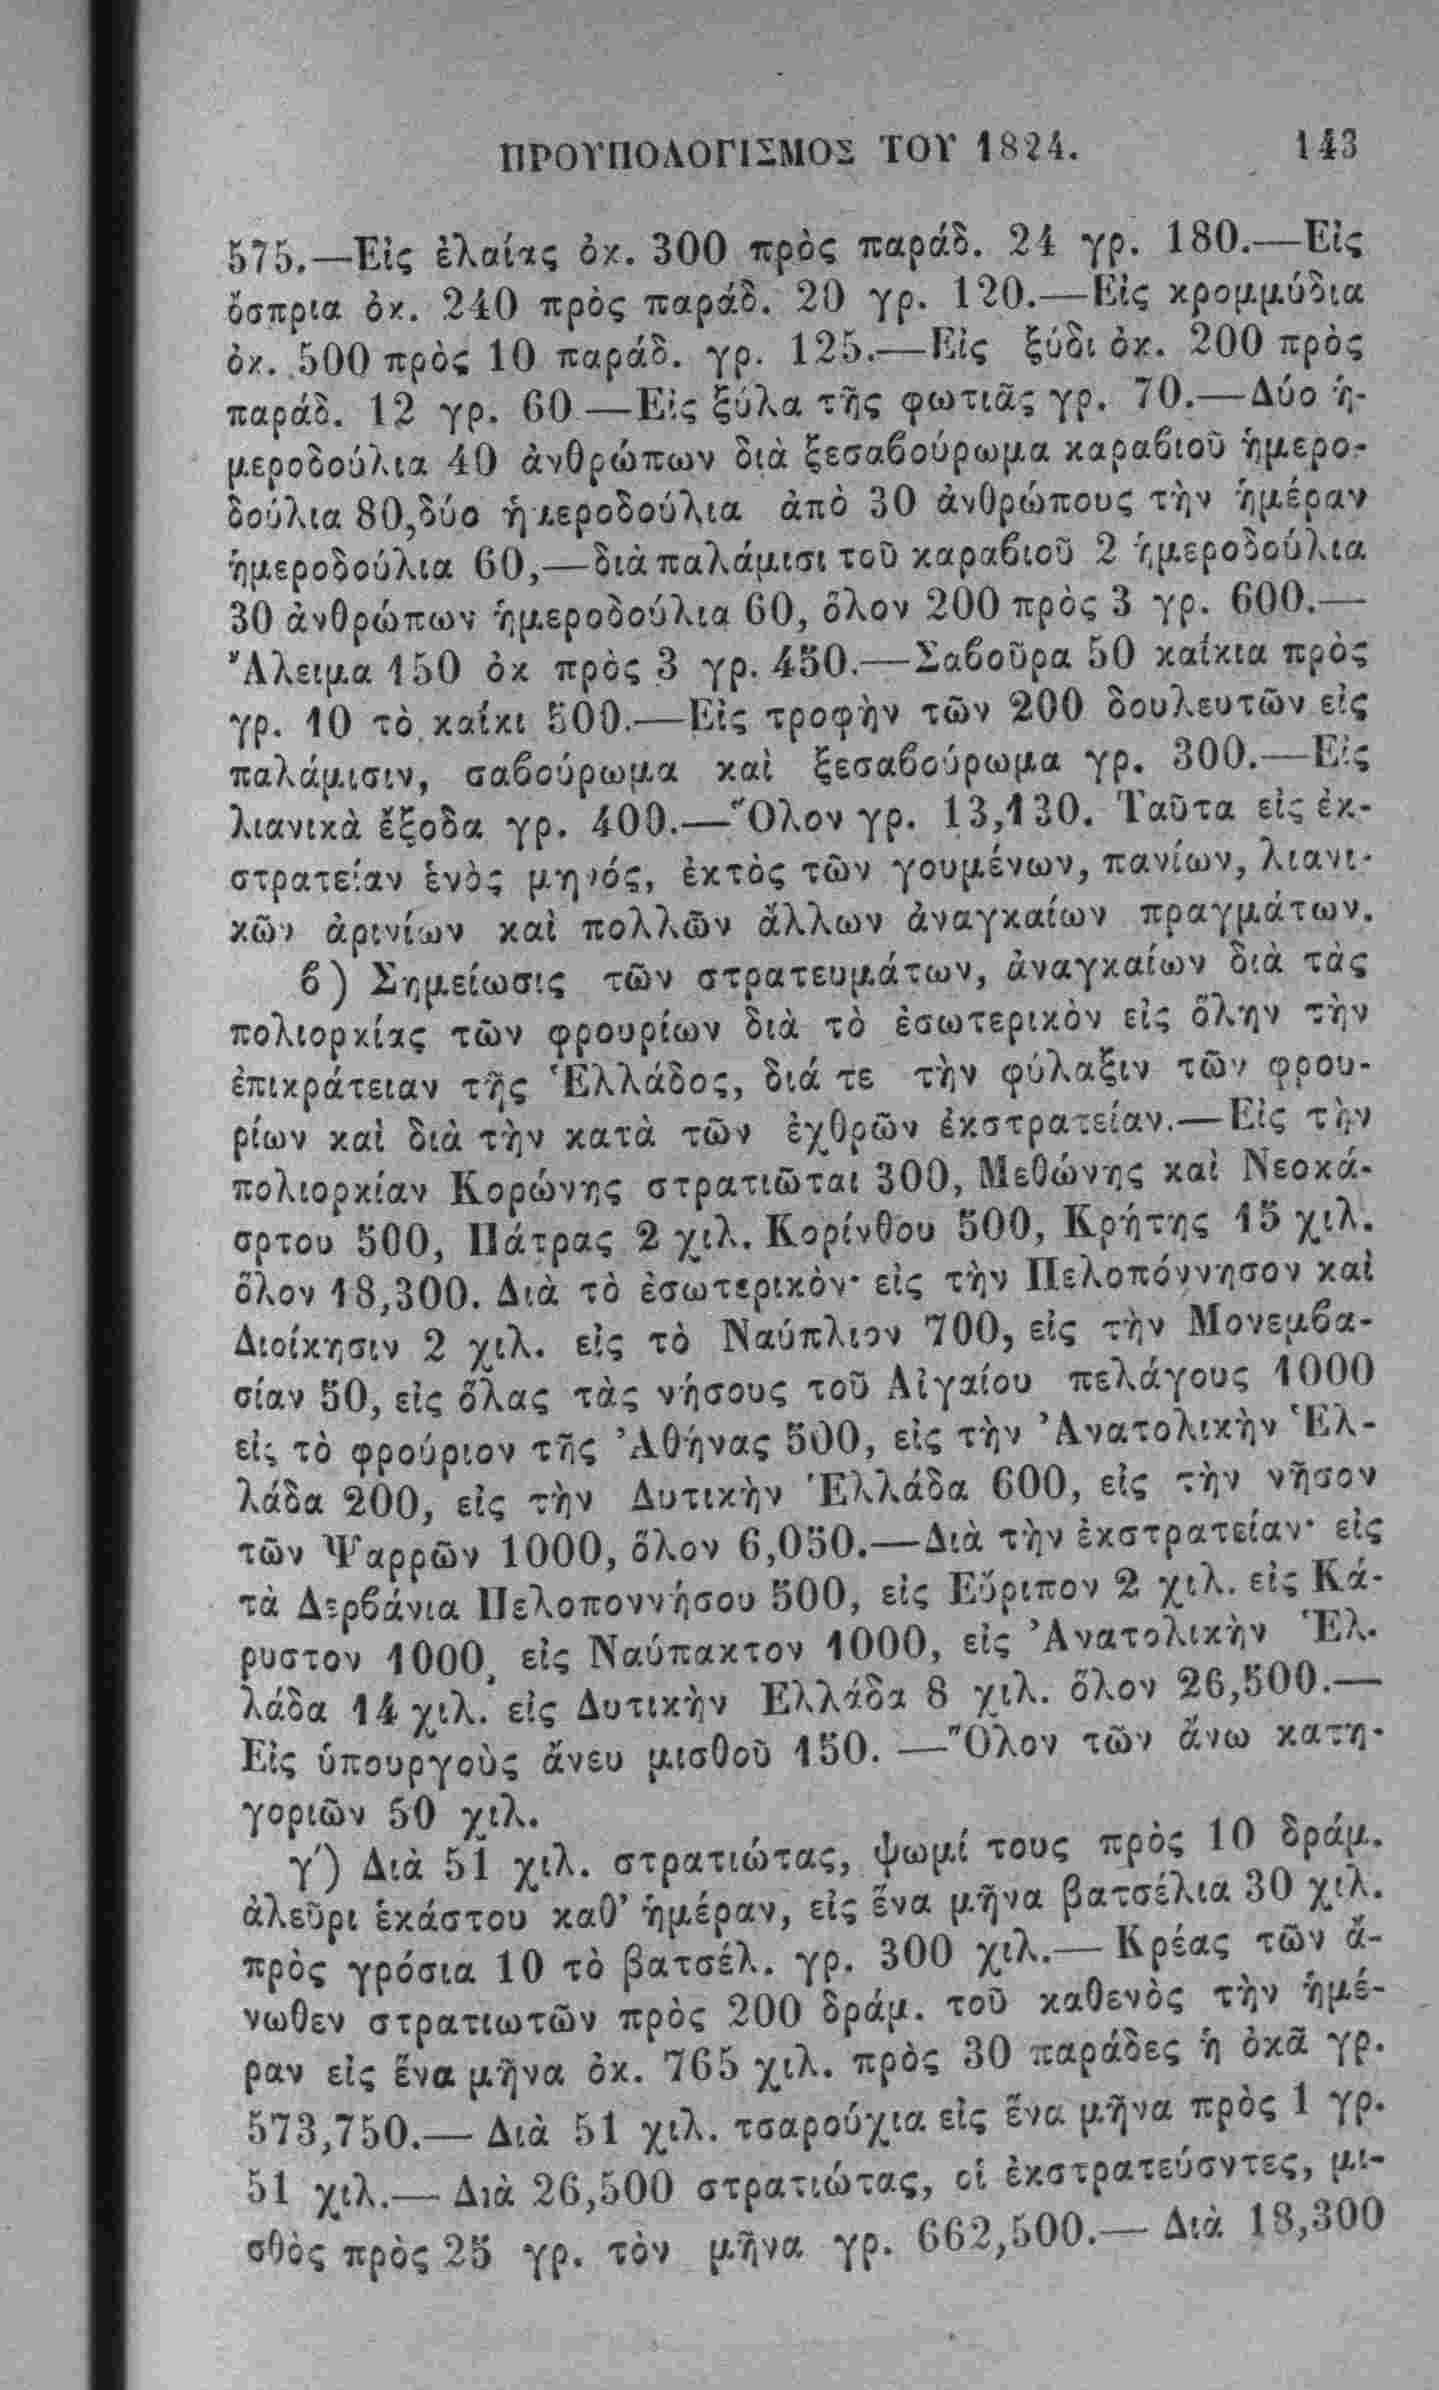 ΠΡΟΥΠΟΛΟΓΙΣΜΟΣ ΤΟΥ 1824. 143
575.—Εἰς ἐλαίας ὀκ. 300 πρὸς παράδ. 24 γρ. 180.—Εἰς
ὄσπρια ὀκ. 240 πρὸς παράδ. 20 γρ. 120.—Εἰς κρομμύδια
ὀκ. 500 πρὸς 10 παράδ. γρ. 125.—Εἰς ξύδι ὀκ. 200 πρὸς
παράδ. 12 γρ. 60—Εἰς ξύλα τῆς φωτιᾶς γρ. 70.—Δύο ἡ-
μεροδούλια 40 ἀνθρώπων διὰ ξεσαβούρωμα καραβιοῦ ἡμερο-
δούλια 80,δύο ἡμεροδούλια ἀπὸ 30 ἀνθρώπους τὴν ἡμέραν
ἡμεροδούλια 60,—διὰ παλάμισι τοῦ καραβιοῦ 2 ἡμεροδούλια
30 ἀνθρώπων ἡμεροδούλια 60, ὅλον 200 πρὸς 3 γρ. 600.—
Ἄλειμα 150 ὀκ πρὸς 3 γρ. 450.—Σαβοῦρα 50 καΐκια πρὸς
γρ. 10 τὸ καΐκι 500.—Εἰς τροφὴν τῶν 200 δουλευτῶν εἰς
παλάμισιν, σαβούρωμα καὶ ξεσαβούρωμα γρ. 300.—Εἰς
λιανικὰ ἔξοδα γρ. 400.—Ὅλον γρ. 13,130. Ταῦτα εἰς ἐκ-
στρατείαν ἑνὸς μηνός, ἐκτὸς τῶν γουμένων, πανίων, λιανι-
κῶν ἀρινίων καὶ πολλῶν ἄλλων ἀναγκαίων πραγμάτων.
β) Σημείωσις τῶν στρατευμάτων, ἀναγκαίων διὰ τὰς
πολιορκίας τῶν φρουρίων διὰ τὸ ἐσωτερικὸν εἰς ὅλην τὴν
ἐπικράτειαν τῆς Ἑλλάδος, διά τε τὴν φύλαξιν τῶν φρου-
ρίων καὶ διὰ τὴν κατὰ τῶν ἐχθρῶν ἐκστρατείαν.—Εἰς τὴν
πολιορκίαν Κορώνης στρατιῶται 300, Μεθώνης καὶ Νεοκά-
σρτου 500, Πάτρας 2 χιλ. Κορίνθου 500, Κρήτης 15 χιλ.
ὅλον 18,300. Διὰ τὸ ἐσωτερικὸν· εἰς τὴν Πελοπόννησον καὶ
Διοίκησιν 2 χιλ. εἰς τὸ Ναύπλιον 700, εἰς τὴν Μονεμβα-
σίαν 50, εἰς ὅλας τὰς νήσους τοῦ Αἰγαίου πελάγους 1000
εἰς τὸ φρούριον τῆς Ἀθήνας 500, εἰς τὴν Ἀνατολικὴν Ἑλ-
λάδα 200, εἰς τὴν Δυτικὴν Ἑλλάδα 600, εἰς τὴν νῆσον
τῶν Ψαρρῶν 1000, ὅλον 6,050.—Διὰ τὴν ἐκστρατείαν· εἰς
τὰ Δερβάνια Πελοποννήσου 500, εἰς Εὔριπον 2 χιλ. εἰς Κά-
ρυστον 1000, εἰς Ναύπακτον 1000, εἰς Ἀνατολικὴν Ἑλ-
λάδα 14 χιλ. εἰς Δυτικὴν Ελλάδα 8 χιλ. ὅλον 26,500.—
Εἰς ὑπουργοὺς ἄνευ μισθοῦ 150. —Ὅλον τῶν ἄνω κατη-
γοριῶν 50 χιλ.
γ΄) Διὰ 51 χιλ. στρατιώτας, ψωμί τους πρὸς 10 δράμ.
ἀλεῦρι ἑκάστου καθ' ἡμέραν, εἰς ἕνα μῆνα βατσέλια 30 χιλ.
πρὸς γρόσια 10 τὸ βατσέλ. γρ. 300 χιλ.—Κρέας τῶν ἄ-
νωθεν στρατιωτῶν πρὸς 200 δράμ. τοῦ καθενὸς τὴν ἡμέ-
ραν εἰς ἕνα μῆνα ὀκ. 765 χιλ. πρὸς 30 παράδες ἡ ὀκᾶ γρ.
573,750.—Διὰ 51 χιλ. τσαρούχια εἰς ἕνα μῆνα πρὸς 1 γρ.
51 χιλ.—Διὰ 26,500 στρατιώτας, οἱ ἐκστρατεύσντες, μι-
σθὸς πρὸς 25 γρ. τὸν μῆνα γρ. 662,500.—Διὰ 18,300